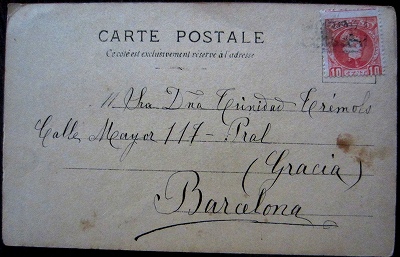 CARTE POSTALE
Ce côté est exclusivement réservé à l'adresse
10 10
Sra Dña Trinidad Trémols
Calle Mayor 117 - Pral
(Gracia)
Barcelona